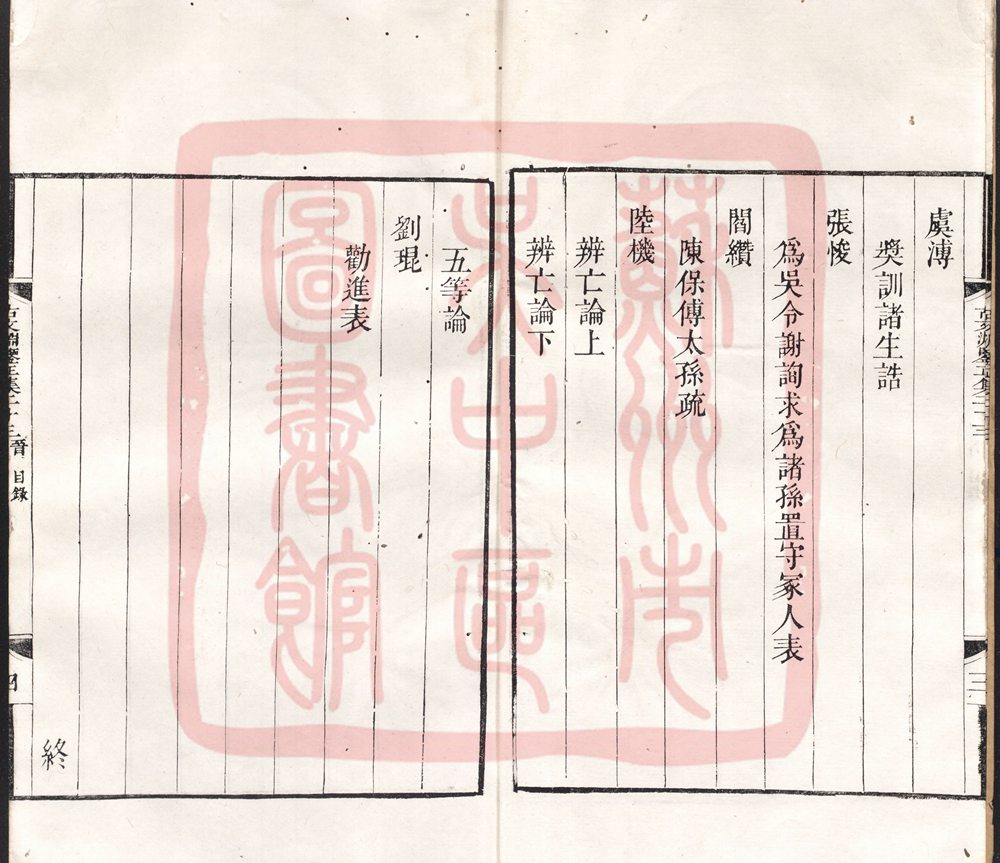 虞溥
獎訓諸生誥
張悛
爲吳令謝詢求爲諸孫置守冢人表
閻纘
陳保傅太孫疏
陸機
辨亡論上
辨亡論下
五等論
劉琨
勸進表
終
目錄
四
三
蘇州市
吳中區
圖書館